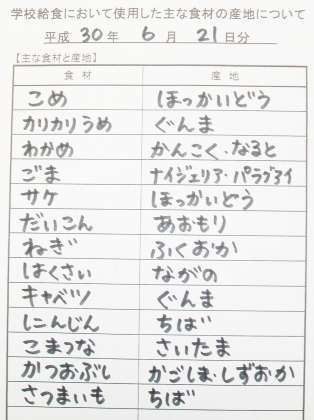 学校給食において使用した主な食材の産地について
平成 30 年 6 月 21 日分
【主な食材と産地】
食材 産地
こめ ほっかいどう
カリカリうめ ぐんま
わかめ かんこく・なると
ごま ナイジェリア・パラグアイ
サケ ほっかいどう
だいこん あおもり
ねぎ ふくおか
はくさい ながの
キャベツ ぐんま
にんじん ちば
こまつな さいたま
かつおぶし かごしま・しずおか
さつまいも ちば